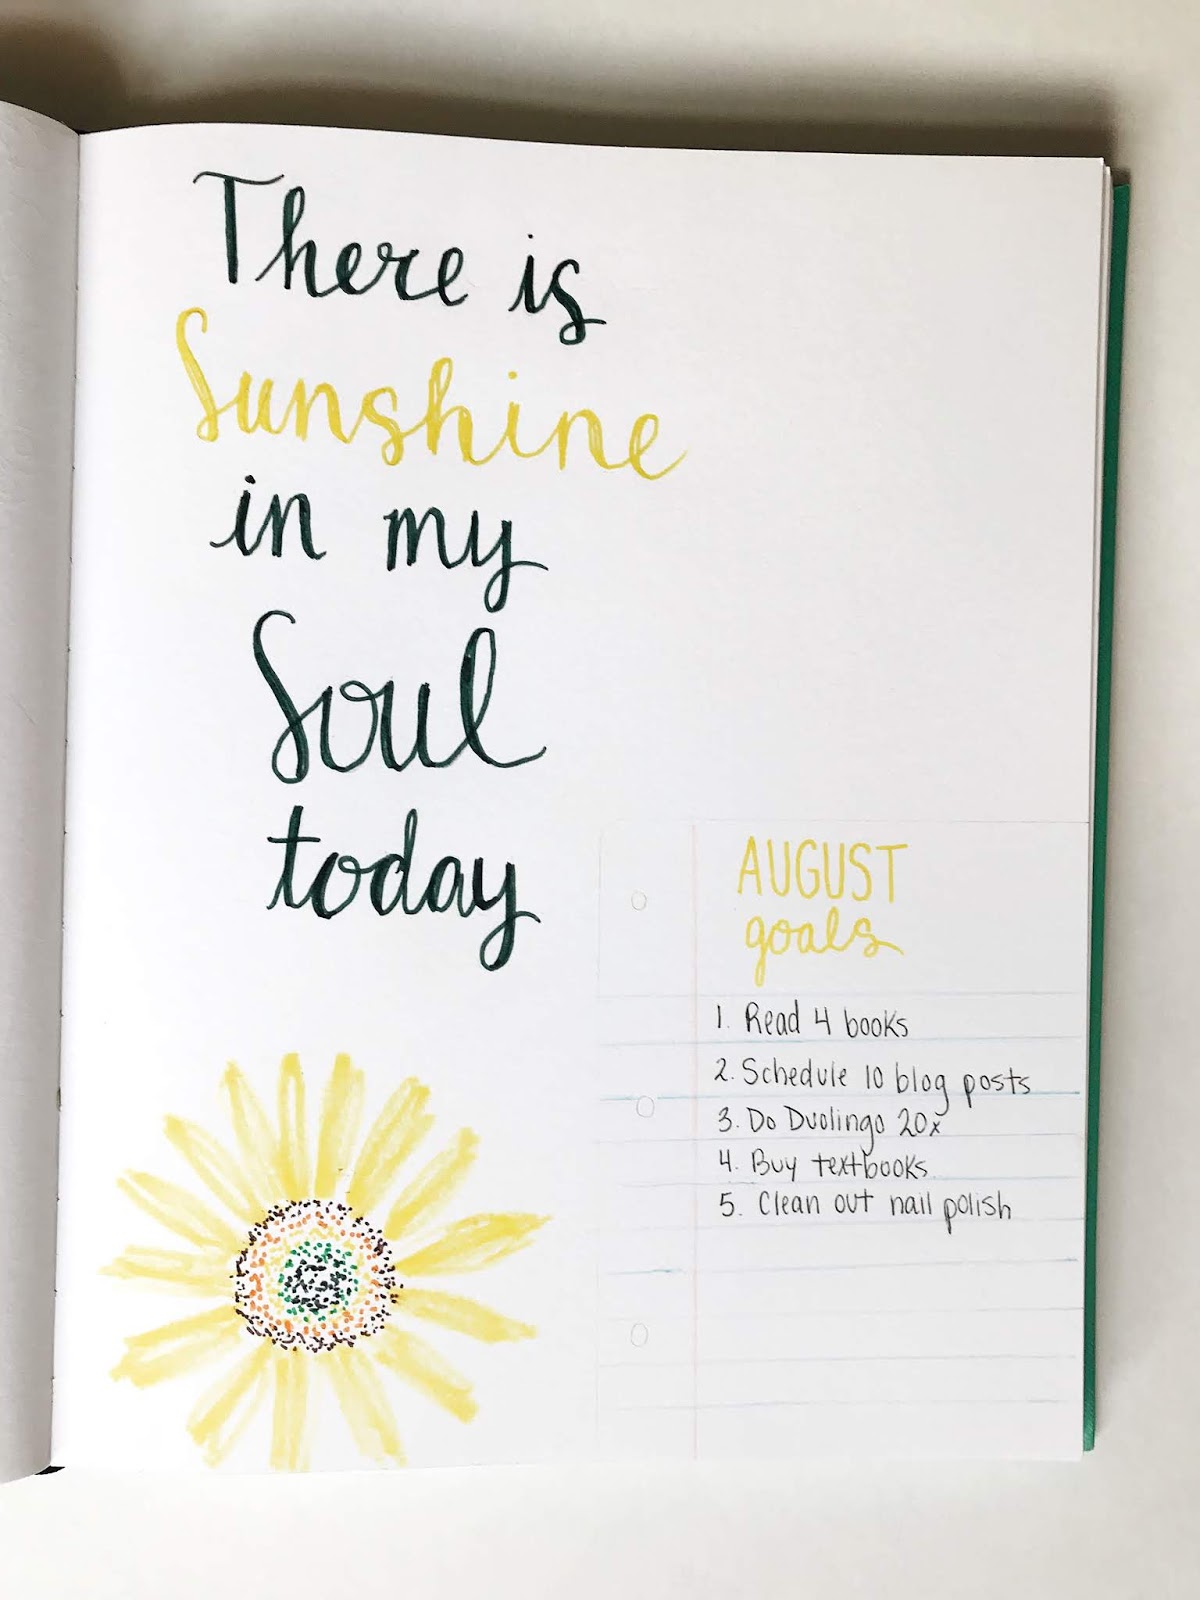 There is
Sunshine
in my
Soul
today
AUGUST
goals
1. Read 4 books
2. Schedule 10 blog posts
3. Do Duolingo 20x
4. Buy textbooks
5. Clean out nail polish